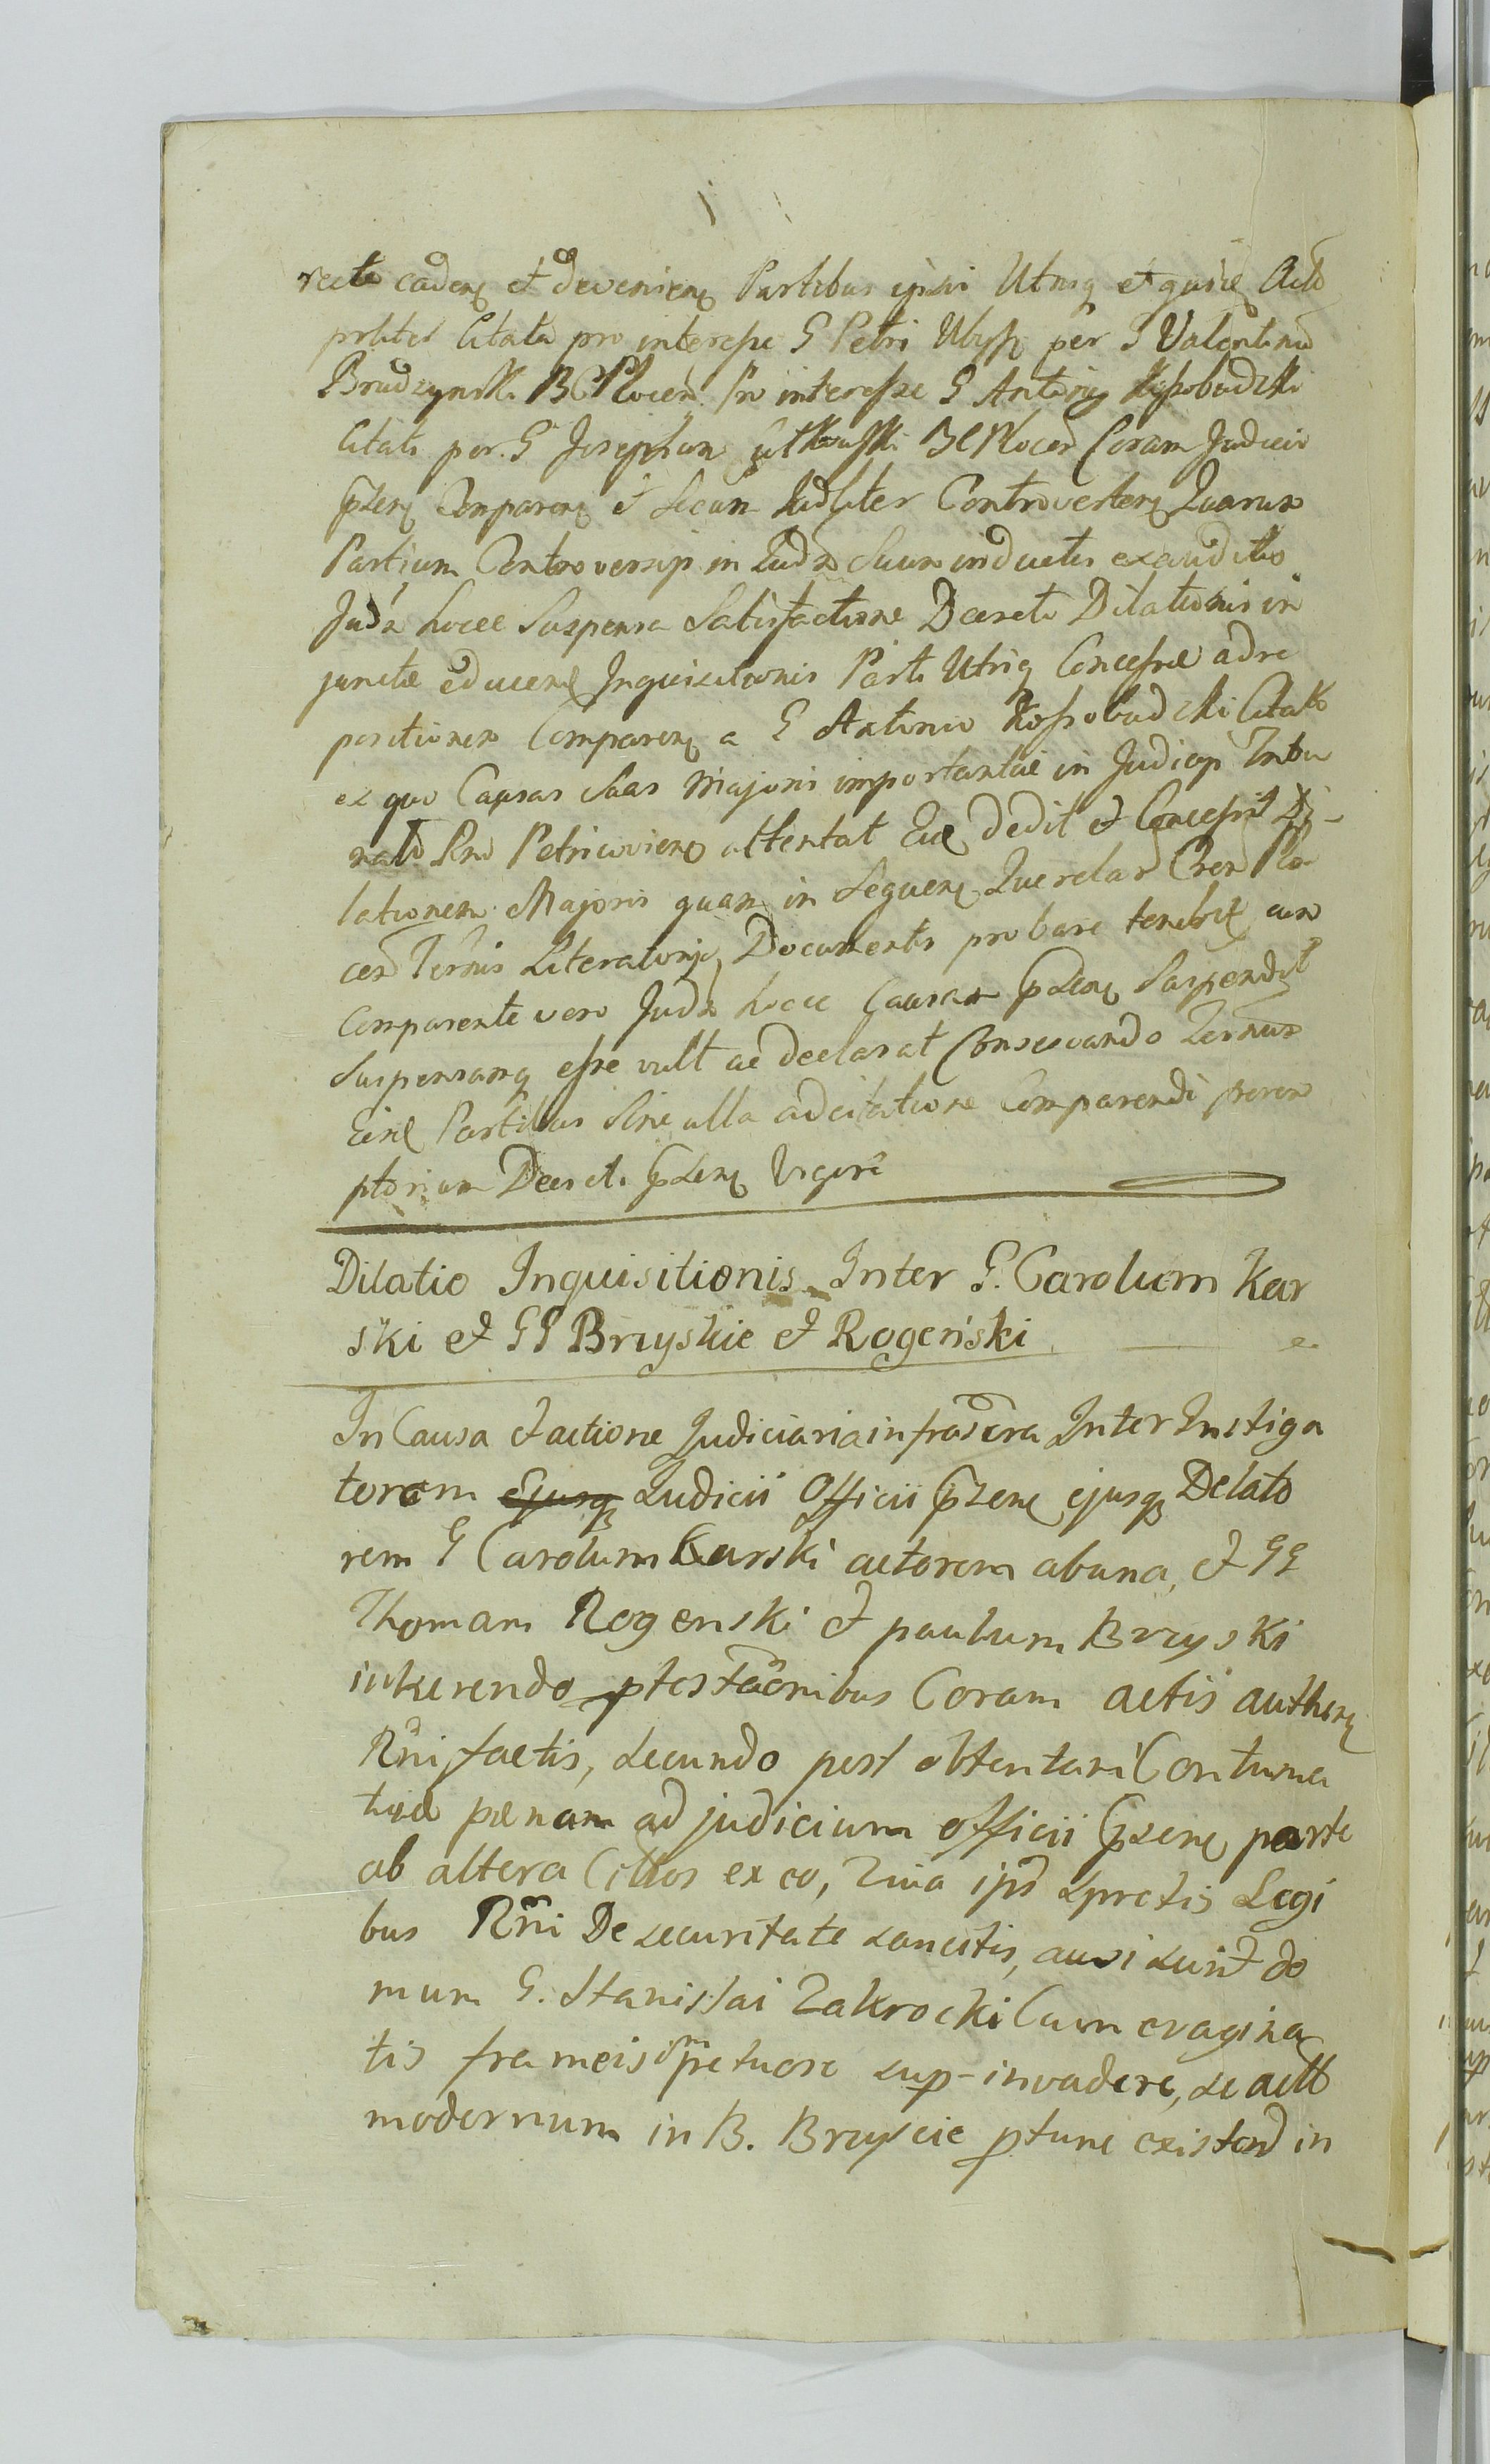 recto cadenȩ et devenienȩ Partibus ipsis Utrisq et quidē Acto
prbtis Citato pro interesse G Petri per G Valentinū
Brudzynski BCPlocen̄ Pro interesse G Antonij Kossobudzki
Citati per G Josephum BCPlocen̄ Coram Judicio
pr̄zenȩ Comparenȩ et Secum Judliter Controvertenȩ Quarum
Partium Controversijs in Judm̄ Suum inductis exauditis
Judm̄ hocce Suspensa Satisfactione Decreti Dilationis in
junctæ educenȩ Inquisitionis Parti Utriq Concessæ ad re
positionem Comparenȩ a G Antonio Kossobudzki Citato
ex quo Causas Suas Majoris importantiæ in Judicijs Tribu
nalib Rni Petricovienȩ attentat Eidȩ dedit et Concessit Di-
lationem Majoris quam in Sequenȩ Querelar Cren̄ Plo
cen̄ Ter̄nis Literatorijs Documentis probare tenebit cum
Comparente vero Judm̄ hocce Causam pr̄zenȩ Suspendit
Suspensamq esse vult ac declarat Conservando Ter̄num
Partibus Sine ulla adcitatione Comparendi perem
ptorium Decreti pr̄zenȩ Vigore
Dilatio Inquisitionis Inter G. Carolum Kar
ski et GG Brzyskie et Rogeński
In Causa et actione Judiciaria infrascrā Inter Instiga
torem Ejusq Judicii Officii pr̄zenȩ ejusq Delato
rem G Carolum Karski actorem ab una, et GG
Thomam Rogenski et paulum Brzyski
inhærendo ptestãonibus Coram actis authenȩ
Rn̄i factis, secundo post obtentam Contuma
tiæ pænam ad judicium officii pr̄zenȩ parte
ab altera Cittos ex eo, Quia ipsi spretis Legi
bus Rn̄i De securitate sancitis, ausi sunt do
mum G. Stanislai Zakrocki Cum evagina
tis frameis imp̄etuose sup-invadere, se actto
modernum in B. Bryscie ptunc existend in